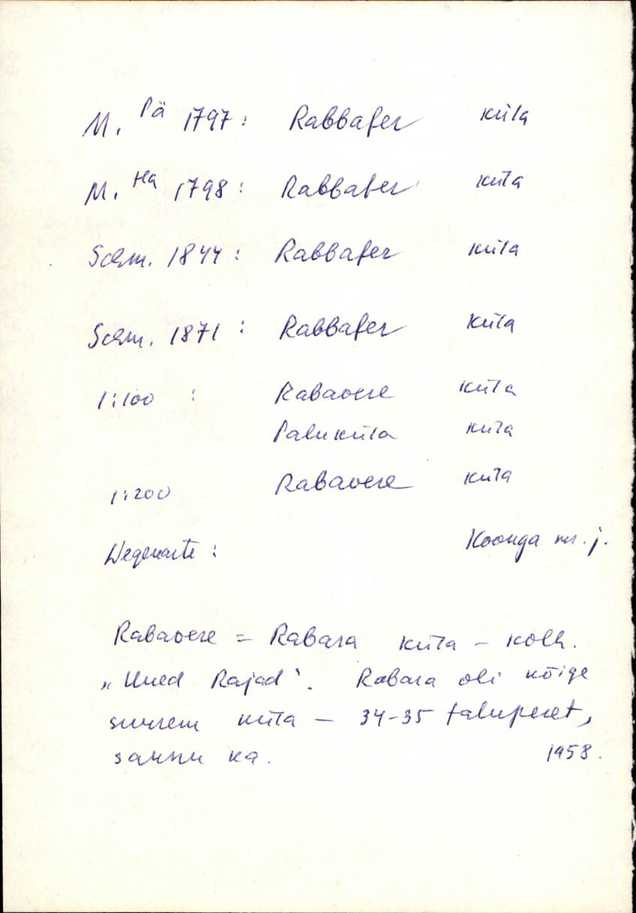 M. Pä 1797: Rabbafer küla
M. Ha 1798: Rabbafer küla
Schm. 1844: Rabbafer küla
Schm. 1871: Rabbafer küla
1:100 : Rabavere küla
Paluküla küla
1:200 Rabavere küla
Wegekarte: Koonga mr. j.
Rabavere = Rabara küla – kolh.
„Uued Rajad". Rabara oli kõige
suurem küla – 34-35 taluperet,
saunu ka. 1958.